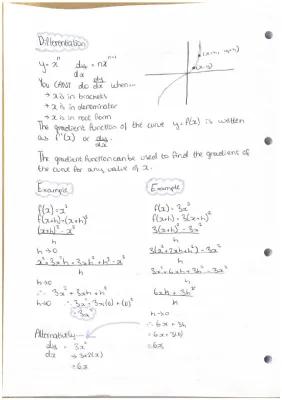 Differentiation
y = xⁿ dy/dx = nxⁿ⁻¹
(x+h, y+h)
(x, y)
You CANT do dy/dx when...
→ x is in brackets
→ x is in denominator
→ x is in root form
The gradient function of the curve y = f(x) is written
as f'(x) or dy/dx.
The gradient function can be used to find the gradient of
the curve for any value of x.
Example
f(x) = x³
f(x+h) = (x+h)³
(x+h)³ - x³
h
h → 0
x³ + 3x²h + 3xh² + h³ - x³
h
h → 0
∴ 3x² + 3xh + h²
h → 0 ∴ 3x² + 3x(0) + (0)²
= 3x²
Alternatively
dy/dx = 3x²
→ 3×2(x)
= 6x
Example
f(x) = 3x²
f(x+h) = 3(x+h)²
3(x+h)² - 3x²
h
3(x² + 2xh + h²) - 3x²
h
3x² + 6xh + 3h² - 3x²
h
6xh + 3h²
h
h → 0
∴ 6x + 3h
= 6x + 3(0)
= 6x